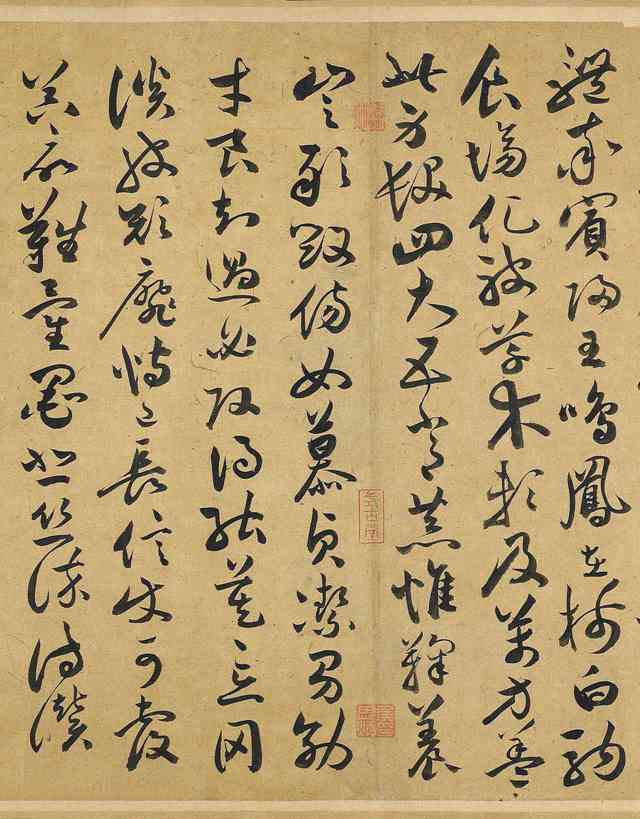 體率賓歸王鳴鳳在樹白駒
食場化被草木賴及萬方蓋
此身髮四大五常恭惟鞠養
豈敢毀傷女慕貞潔男效
才良知過必改得能莫忘罔
談彼短靡恃己長信使可覆
器欲難量墨悲絲染詩讚